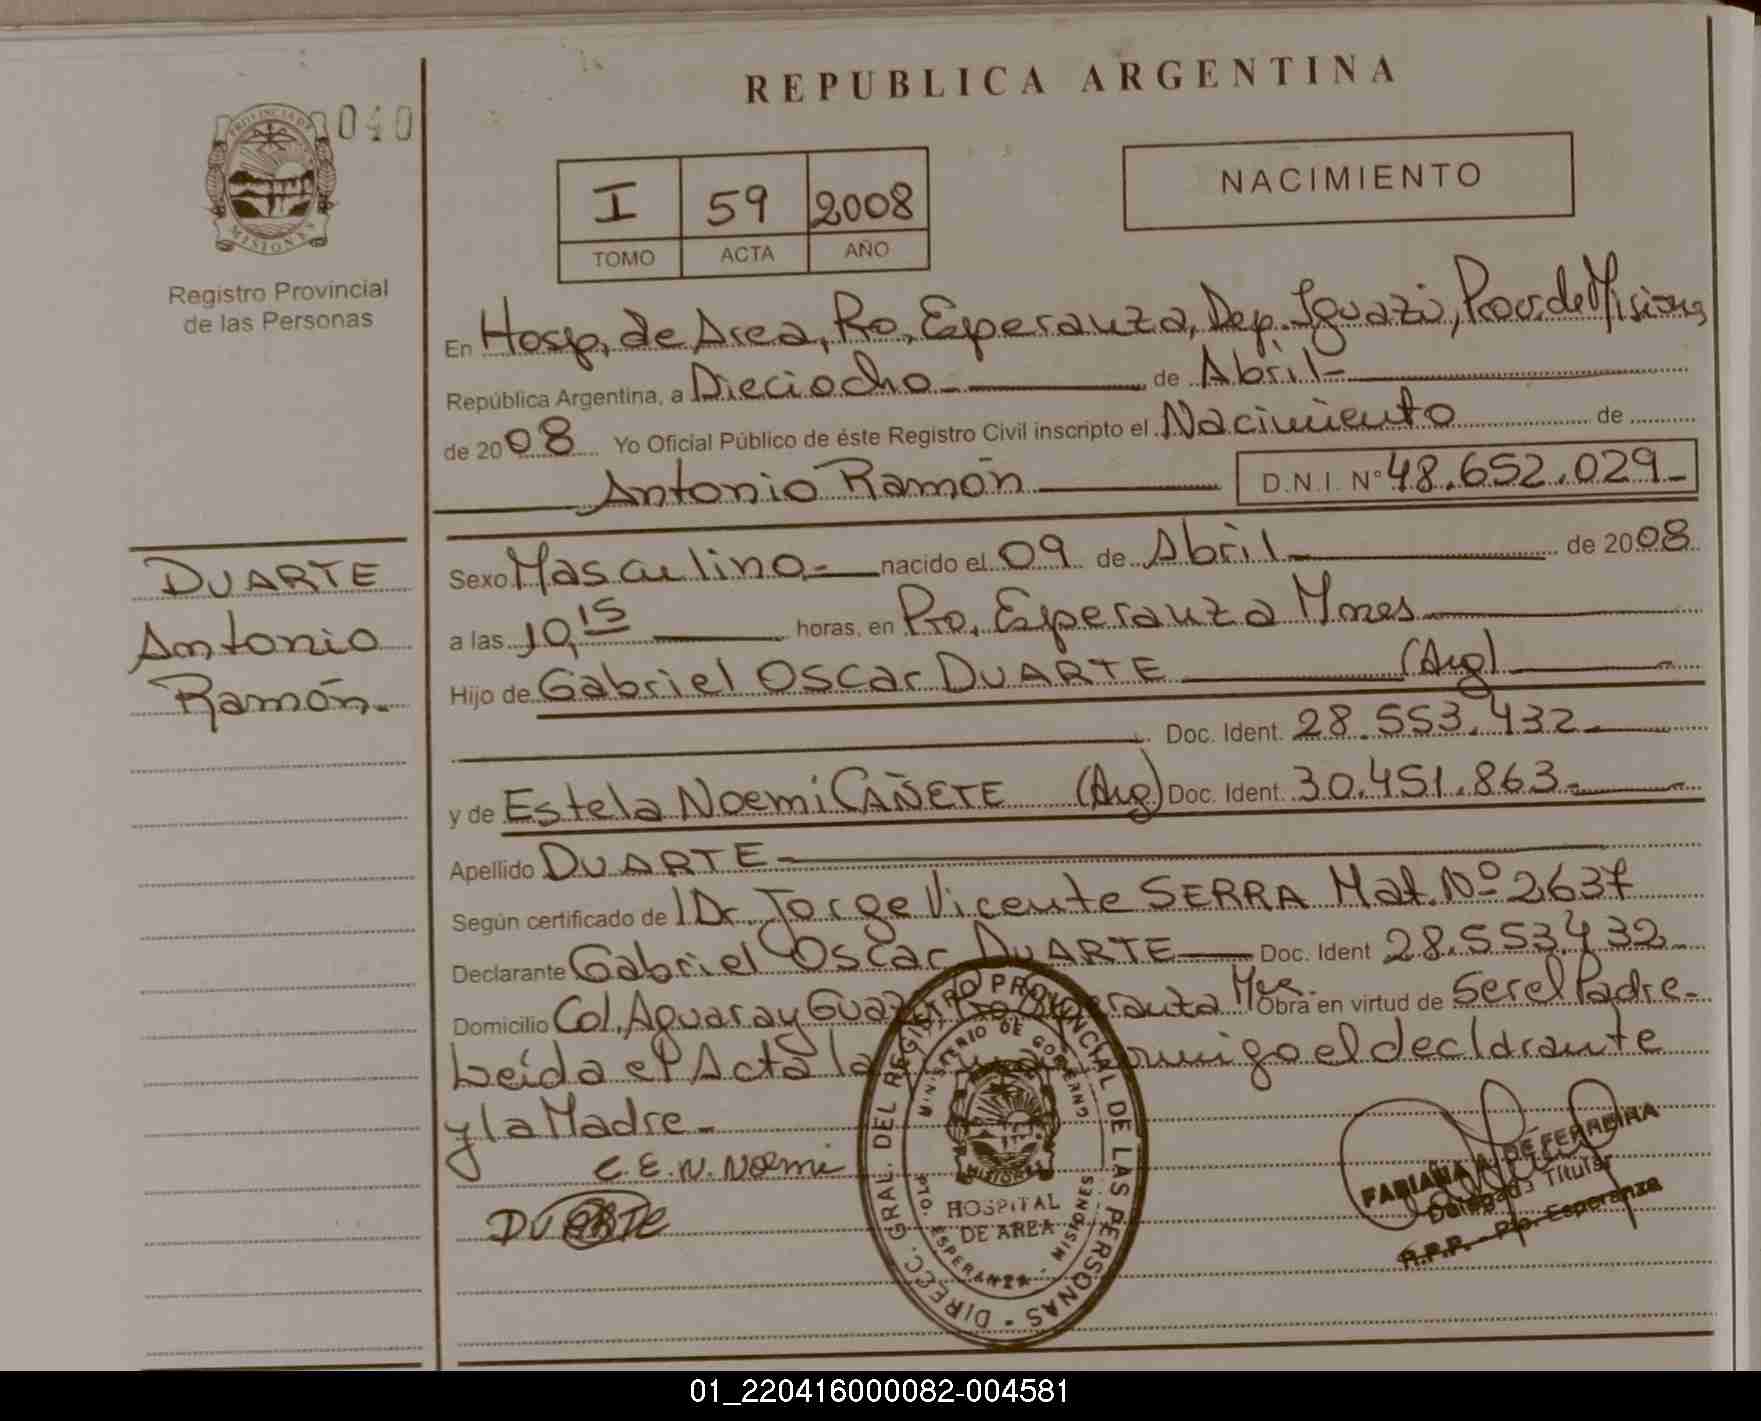 REPUBLICA ARGENTINA
040
PROVINCIA DE
MISIONES
Registro Provincial
de las Personas
I 59 2008
TOMO ACTA AÑO
NACIMIENTO
En Hosp. de Area, Pto. Esperanza, Dep. Iguazú, Prov. de Misiones
República Argentina, a Dieciocho de Abril
de 2008 Yo Oficial Público de éste Registro Civil inscripto el Nacimiento de
Antonio Ramón D.N.I. N° 48.652.029
DUARTE
Antonio
Ramón.
Sexo Masculino nacido el 09 de Abril de 2008
a las 10,15 horas, en Pto. Esperanza Mnes
Hijo de Gabriel Oscar DUARTE (Arg)
Doc. Ident. 28.553.432
y de Estela Noemi CAÑETE (Arg) Doc. Ident. 30.451.863
Apellido DUARTE
Según certificado de Dr. Jorge Vicente SERRA Mat. Nº 2637
Declarante Gabriel Oscar DUARTE Doc. Ident 28.553.432
Domicilio Col. Aguaray Guazú Pto Esperanza Mnes. Obra en virtud de ser el Padre
Leída el Acta la conmigo el declarante
y la Madre
C.E.N. Noemi
DUARTE
DIRECC. GRAL. DEL REGISTRO PROVINCIAL DE LAS PERSONAS
MINISTERIO DE GOBIERNO
MISIONES
HOSPITAL
DE AREA
PTO. ESPERANZA - MISIONES
FABIANA A. DE FERREIRA
Delegada Titular
R.P.P. - Pto. Esperanza
01_220416000082-004581